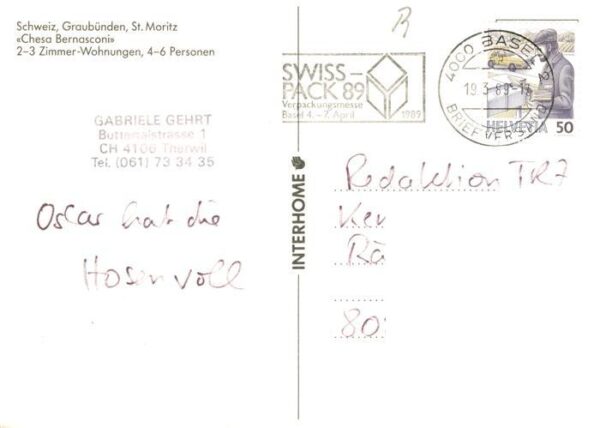 Schweiz, Graubünden, St. Moritz
«Chesa Bernasconi»
2–3 Zimmer-Wohnungen, 4–6 Personen
GABRIELE GEHRT
CH 4106 Therwil
Tel. (061) 73 34 35
Oscar hat die
Hosen voll
INTERHOME
SWISS–
PACK 89
Verpackungsmesse
Basel 4. – 7. April
1989
4000 BASEL 2
19.3.89-17
BRIEFVERSAND
HELVETIA 50
Redaktion TR7
Rä
80